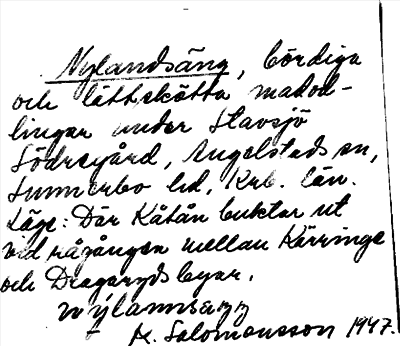 Nylandsäng, bördiga
och lättskötta madod-
lingar under Stavsjö
Södregård, Angelstads sn,
Sunnerbo hd, Krb. län.
Läge: Där Kåtån buktar ut
vid rågången mellan Kärringe
och Dragaryds byar.
A. Salomonsson 1947.